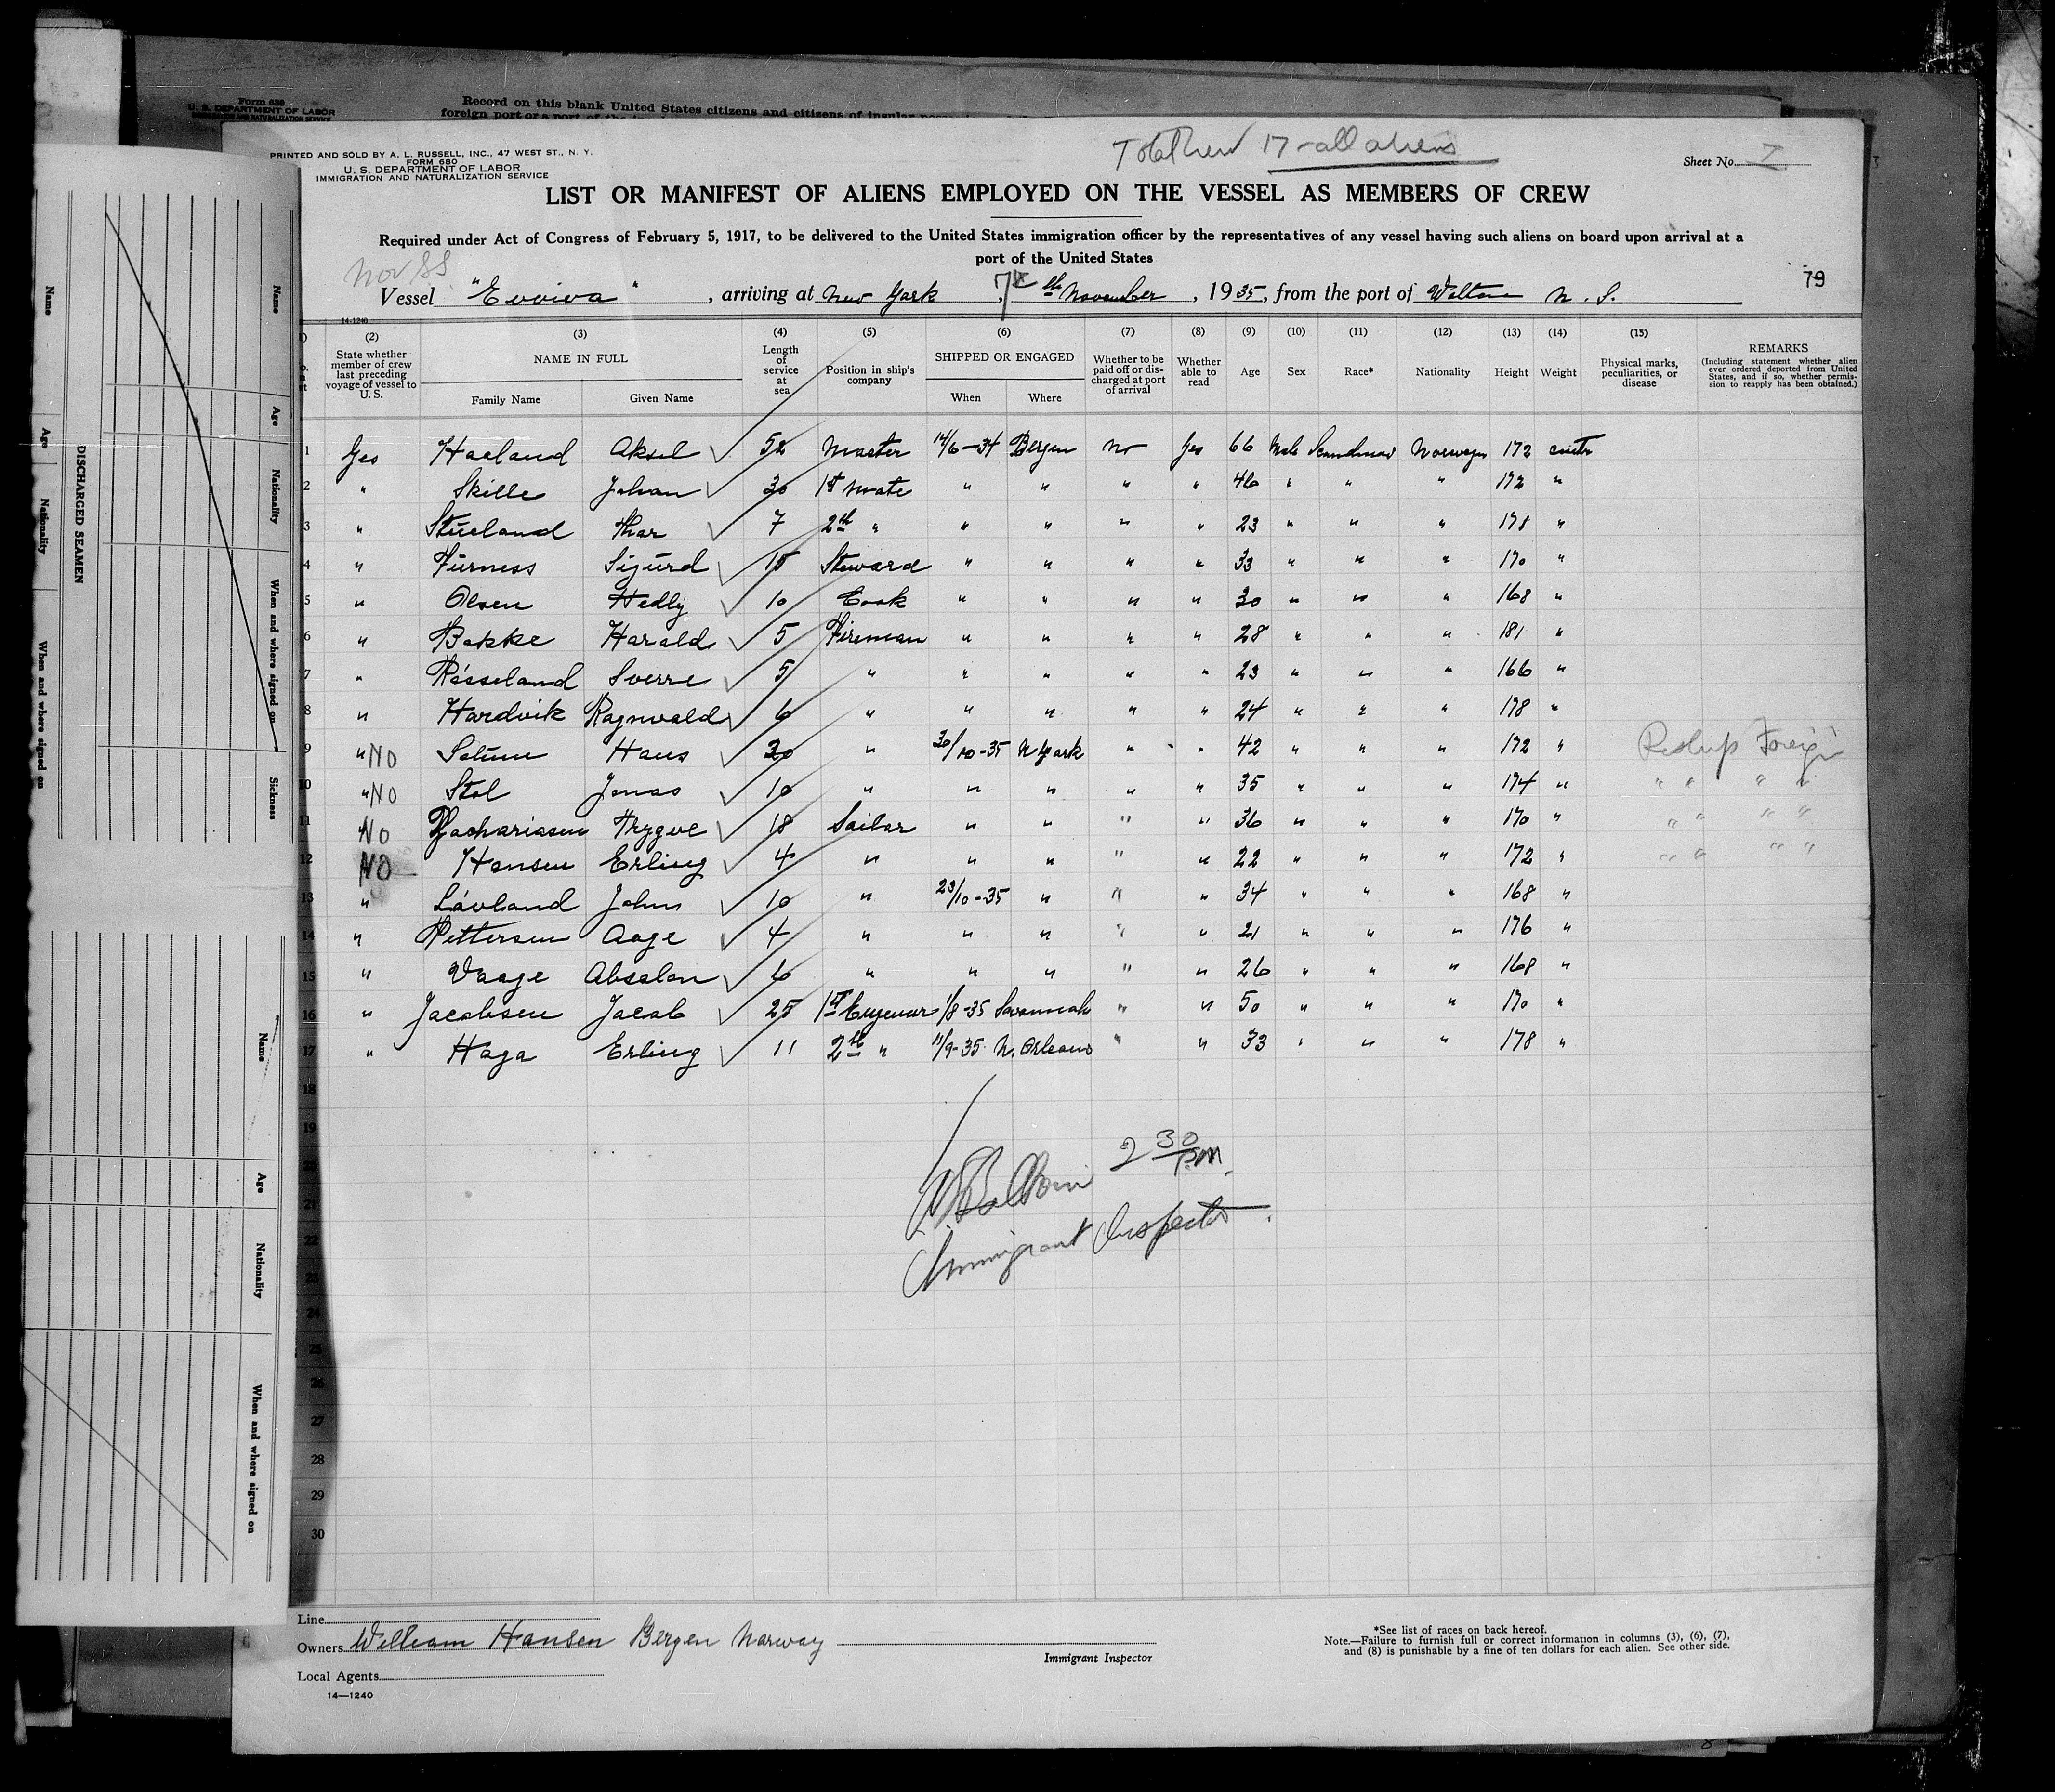 Form 680
U. S. DEPARTMENT OF LABOR
IMMIGRATION AND NATURALIZATION SERVICE
Record on this blank United States citizens and citizens of insular
foreign port or a port of the
PRINTED AND SOLD BY A. L. RUSSELL, INC., 47 WEST ST., N. Y.
FORM 680
U. S. DEPARTMENT OF LABOR
IMMIGRATION AND NATURALIZATION SERVICE
17 - all aliens
Sheet No. I
LIST OR MANIFEST OF ALIENS EMPLOYED ON THE VESSEL AS MEMBERS OF CREW
Required under Act of Congress of February 5, 1917, to be delivered to the United States immigration officer by the representatives of any vessel having such aliens on board upon arrival at a
port of the United States
Nor SS
79
Vessel "Evviva", arriving at New York, 7th November, 1935, from the port of Walton N. S.
14-1240
(2) (3) (4) (5) (6) (7) (8) (9) (10) (11) (12) (13) (14) (15)
State whether member of crew last preceding voyage of vessel to U. S.
NAME IN FULL
Family Name Given Name
Length of service at sea
Position in ship's company
SHIPPED OR ENGAGED
When Where
Whether to be paid off or discharged at port of arrival
Whether able to read
Age Sex Race* Nationality Height Weight
Physical marks, peculiarities, or disease
REMARKS
(Including statement whether alien ever ordered deported from United States, and if so, whether permission to reapply has been obtained.)
1 Yes Haeland Aksel 52 Master 14/6-34 Bergen no Yes 66 Male Scandinav Norwegn 172
2 " Skille Johan 30 1st mate " " " " 46 " " " 172 "
3 " Stueland Thor 7 2th " " " " " 23 " " " 178 "
4 " Furness Sigurd 15 Steward " " " " 33 " " " 170 "
5 " Olsen Hedly 10 Cook " " " " 30 " " " 168 "
6 " Bakke Harald 5 Fireman " " " " 28 " " " 181 "
7 " Rösseland Sverre 5 " " " " " 23 " " " 166 "
8 " Hardvik Ragnvald 6 " " " " " 24 " " " 178 "
9 " NO Solum Hans 20 " 30/10-35 N York " " 42 " " " 172 " Reship Foreign
10 " NO Stol Jonas 10 " " " " " 35 " " " 174 " " " " "
11 NO Zachariasen Trygve 18 Sailor " " " " 36 " " " 170 " " " " "
12 NO Hansen Erling 4 " " " " " 22 " " " 172 " " " " "
13 " Lövland Johns 10 " 23/10-35 " " " 34 " " " 168 "
14 " Pettersen Aage 4 " " " " " 21 " " " 176 "
15 " Vaage Absalon 6 " " " " " 26 " " " 168 "
16 " Jacobsen Jacob 25 1st Engeneer 1/8-35 Savannah " " 50 " " " 170 "
17 " Haga Erling 11 2th " 11/9-35 N. Orleans " " 33 " " " 178 "
18
19
20
21
22
23
24
25
26
27
28
29
30
2 30 PM.
Immigrant Inspector.
Line
Owners William Hansen Bergen Norway
Local Agents
14—1240
Immigrant Inspector
*See list of races on back hereof.
Note.—Failure to furnish full or correct information in columns (3), (6), (7),
and (8) is punishable by a fine of ten dollars for each alien. See other side.
DISCHARGED SEAMEN
Name Age Nationality When and where signed on Sickness
Name Age Nationality When and where signed on
Name Age Nationality When and where signed on